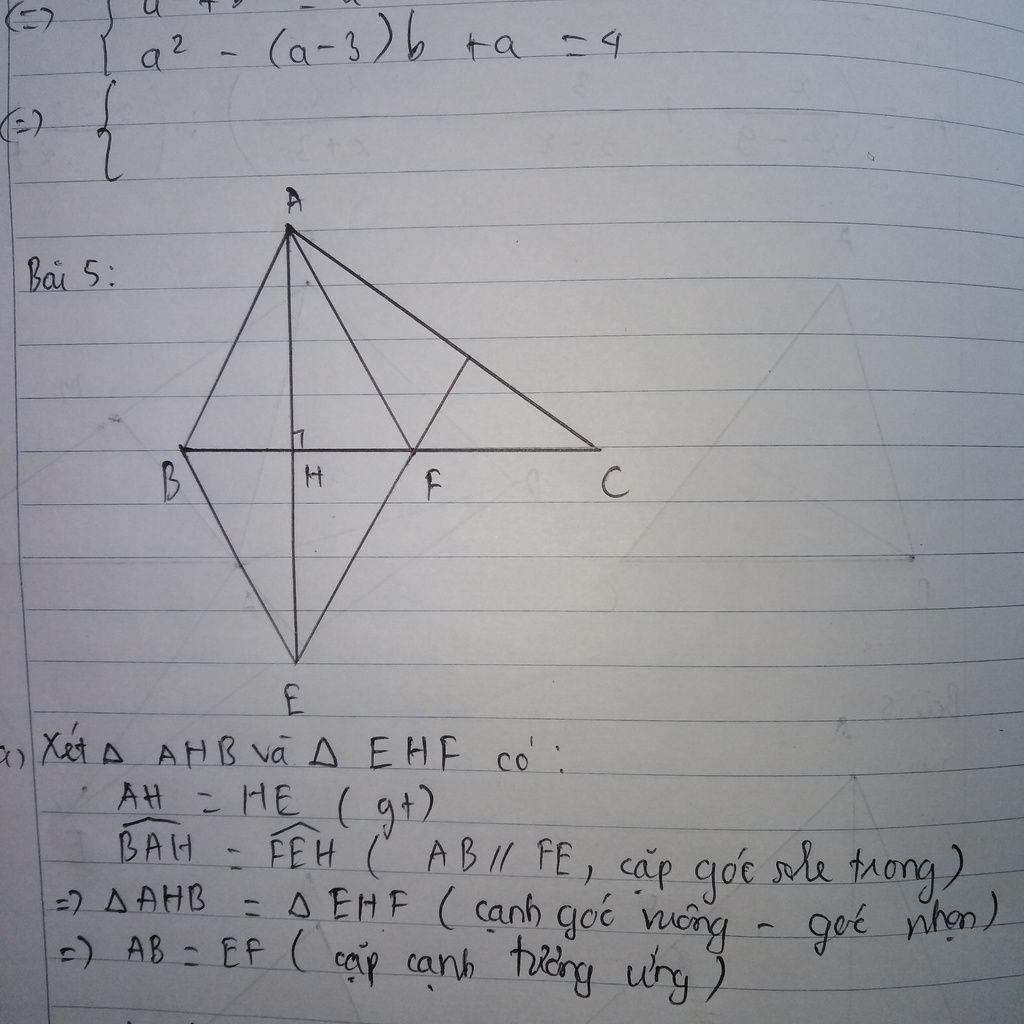 (=) {
a² - (a-3)b + a = 4
(=) {
A
Bài 5:
B H F C
E
a) Xét Δ AHB và Δ EHF có:
AH = HE (gt)
BAH = FEH ( AB // FE, cặp góc sole trong)
=> ΔAHB = Δ EHF ( cạnh góc vuông - góc nhọn)
=> AB = EF ( cặp cạnh tương ứng)